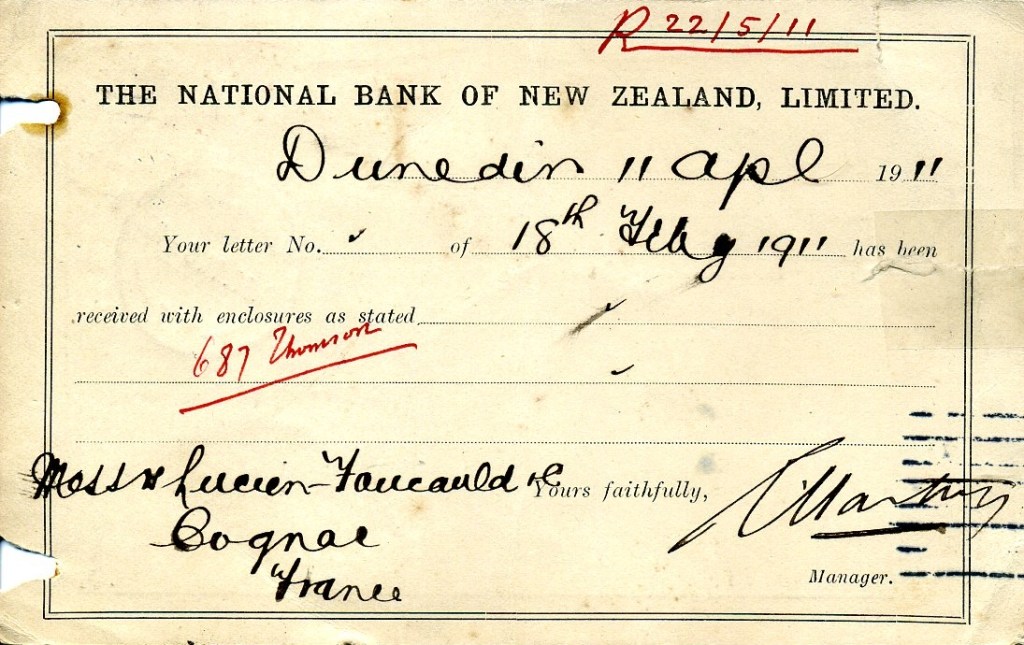 R 22/5/11
THE NATIONAL BANK OF NEW ZEALAND, LIMITED.
Dunedin 11 Apl 1911
Your letter No. of 18th Feby 1911 has been
received with enclosures as stated
687 Thomson
Messrs Lucien-Foucauld & C
Yours faithfully,
Cognac
France
Manager.